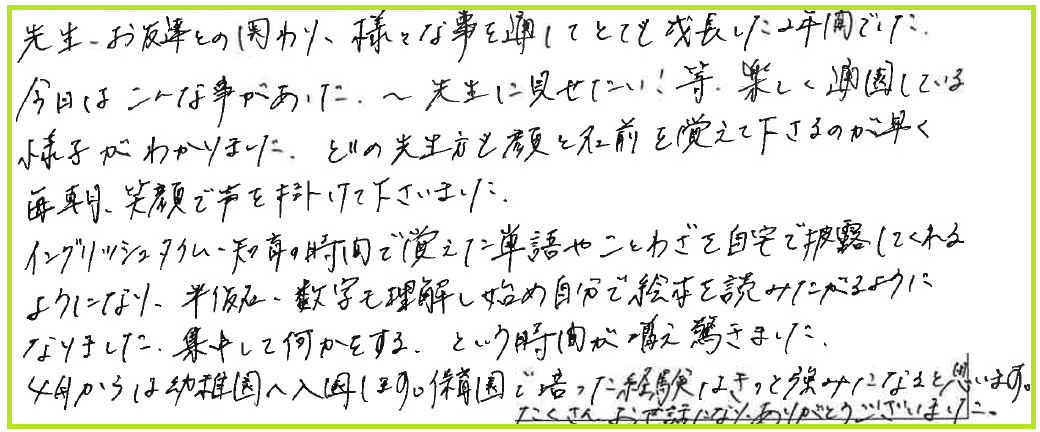 先生・お友達との関わり、様々な事を通してとても成長した2年間でした。
今日はこんな事があった。～先生に見せたい!等、楽しく通園している
様子がわかりました。どの先生方も顔と名前を覚えて下さるのが早く
毎朝、笑顔で声を掛けて下さいました。
イングリッシュタイム・知育の時間で覚えた単語やことわざを自宅で披露してくれる
ようになり、平仮名・数字も理解し始め自分で絵本を読みたがるように
なりました。集中して何かをする、という時間が増え驚きました。
4月からは幼稚園へ入園します。保育園で培った経験はきっと強みになると思います。
たくさんお世話になり、ありがとうございました。